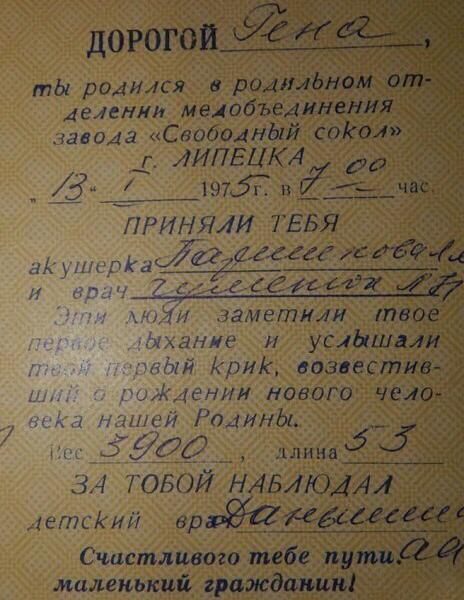 ДОРОГОЙ Гена,
ты родился в родильном от-
делении медобъединения
завода «Свободный сокол»
г. ЛИПЕЦКА
„13“ I 1975 г. в 7 00 час.
ПРИНЯЛИ ТЕБЯ
акушерка
и врач
Эти люди заметили твое
первое дыхание и услышали
твой первый крик, возвестив-
ший о рождении нового чело-
века нашей Родины.
Вес 3900, длина 53
ЗА ТОБОЙ НАБЛЮДАЛ
детский врач
Счастливого тебе пути,
маленький гражданин!